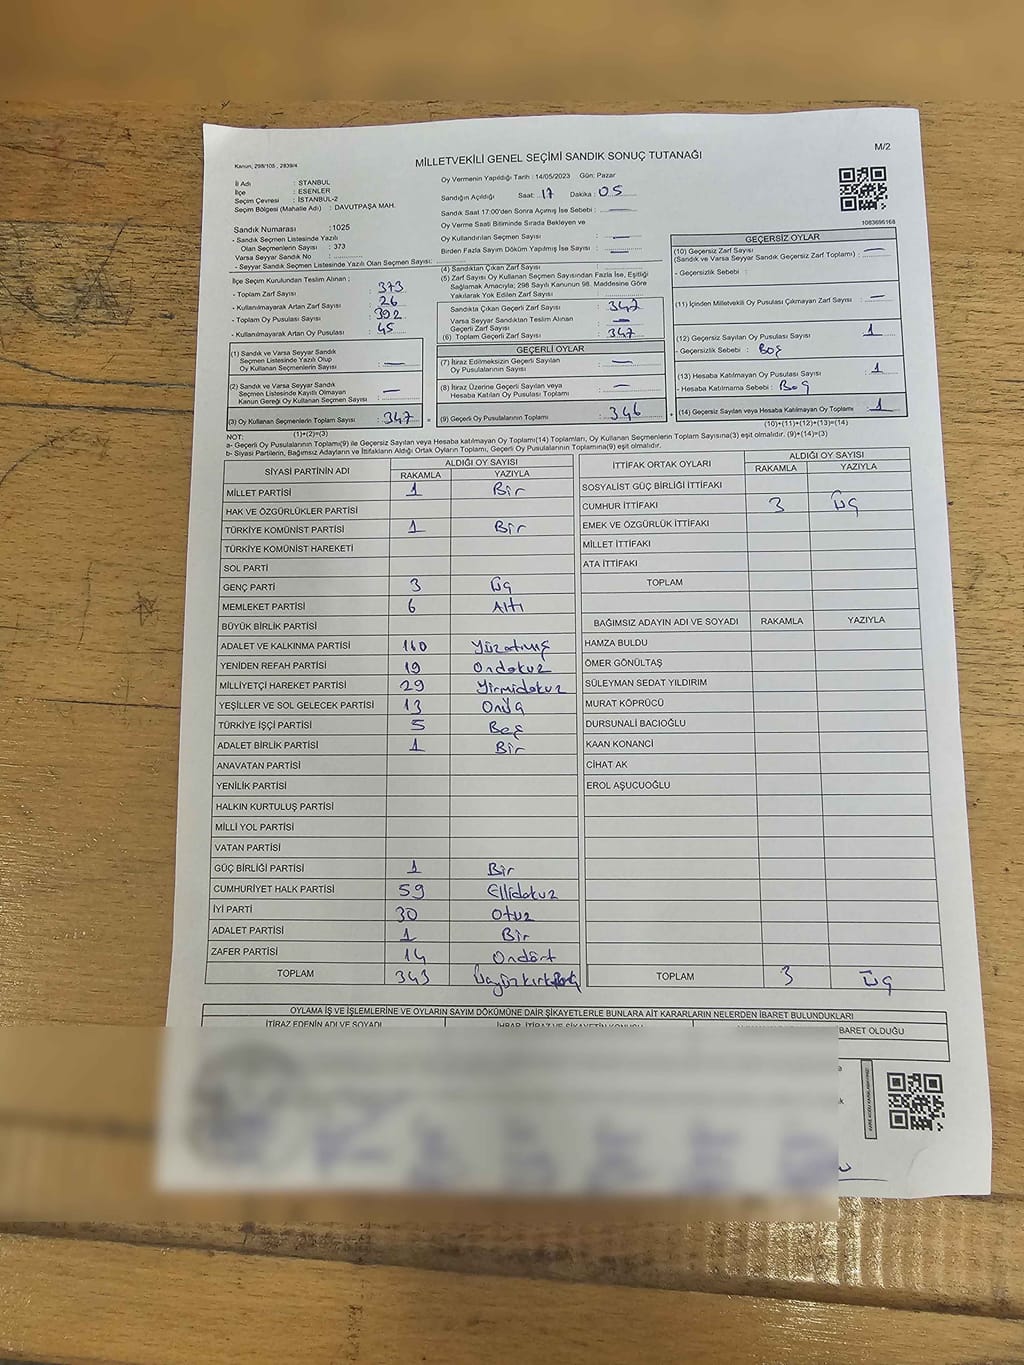 M/2
Kanun, 298/105 , 2839/4
MİLLETVEKİLİ GENEL SEÇİMİ SANDIK SONUÇ TUTANAĞI
İl Adı : STANBUL
İlçe : ESENLER
Seçim Çevresi : İSTANBUL-2
Seçim Bölgesi (Mahalle Adı) : DAVUTPAŞA MAH.
Sandık Numarası :1025
- Sandık Seçmen Listesinde Yazılı
Olan Seçmenlerin Sayısı : 373
Varsa Seyyar Sandık No :
- Seyyar Sandık Seçmen Listesinde Yazılı Olan Seçmen Sayısı:
Oy Vermenin Yapıldığı Tarih : 14/05/2023 Gün: Pazar
Sandığın Açıldığı Saat: 17 Dakika : 05
Sandık Saat 17:00'den Sonra Açımış İse Sebebi : —
Oy Verme Saati Bitiminde Sırada Bekleyen ve
Oy Kullandırılan Seçmen Sayısı : —
Birden Fazla Sayım Döküm Yapılmış İse Sayısı : —
1083695168
İlçe Seçim Kurulundan Teslim Alınan ;
- Toplam Zarf Sayısı : 373
- Kullanılmayarak Artan Zarf Sayısı : 26
- Toplam Oy Pusulası Sayısı : 392
- Kullanılmayarak Artan Oy Pusulası : 45
(1) Sandık ve Varsa Seyyar Sandık
Seçmen Listesinde Yazılı Olup
Oy Kullanan Seçmenlerin Sayısı : —
(2) Sandık ve Varsa Seyyar Sandık
Seçmen Listesinde Kayıtlı Olmayan
Kanun Gereği Oy Kullanan Seçmen Sayısı : —
(3) Oy Kullanan Seçmenlerin Toplam Sayısı : 347 =
(1)+(2)=(3)
(4) Sandıktan Çıkan Zarf Sayısı :
(5) Zarf Sayısı Oy Kullanan Seçmen Sayısından Fazla İse, Eşitliği
Sağlamak Amacıyla; 298 Sayılı Kanunun 98. Maddesine Göre
Yakılarak Yok Edilen Zarf Sayısı :
Sandıkta Çıkan Geçerli Zarf Sayısı : 347
Varsa Seyyar Sandıktan Teslim Alınan
Geçerli Zarf Sayısı : —
(6) Toplam Geçerli Zarf Sayısı : 347
GEÇERLİ OYLAR
(7) İtiraz Edilmeksizin Geçerli Sayılan
Oy Pusulalarının Sayısı : —
(8) İtiraz Üzerine Geçerli Sayılan veya
Hesaba Katılan Oy Pusulası Toplamı : —
(9) Geçerli Oy Pusulalarının Toplamı : 346 +
GEÇERSİZ OYLAR
(10) Geçersiz Zarf Sayısı
(Sandık ve Varsa Seyyar Sandık Geçersiz Zarf Toplamı) : —
- Geçersizlik Sebebi :
(11) İçinden Milletvekili Oy Pusulası Çıkmayan Zarf Sayısı : —
(12) Geçersiz Sayılan Oy Pusulası Sayısı : 1
- Geçersizlik Sebebi : Boş
(13) Hesaba Katılmayan Oy Pusulası Sayısı : 1
- Hesaba Katılmama Sebebi : Boş
(14) Geçersiz Sayılan veya Hesaba Katılmayan Oy Toplamı : 1
(10)+(11)+(12)+(13)=(14)
NOT:
a- Geçerli Oy Pusulalarının Toplamı(9) ile Geçersiz Sayılan veya Hesaba katılmayan Oy Toplamı(14) Toplamları, Oy Kullanan Seçmenlerin Toplam Sayısına(3) eşit olmalıdır. (9)+(14)=(3)
b- Siyasi Partilerin, Bağımsız Adayların ve İttifakların Aldığı Ortak Oyların Toplamı, Geçerli Oy Pusulalarının Toplamına(9) eşit olmalıdır.
SİYASİ PARTİNİN ADI ALDIĞI OY SAYISI
RAKAMLA YAZIYLA
MİLLET PARTİSİ 1 Bir
HAK VE ÖZGÜRLÜKLER PARTİSİ
TÜRKİYE KOMÜNİST PARTİSİ 1 Bir
TÜRKİYE KOMÜNİST HAREKETİ
SOL PARTİ
GENÇ PARTİ 3 Üç
MEMLEKET PARTİSİ 6 Altı
BÜYÜK BİRLİK PARTİSİ
ADALET VE KALKINMA PARTİSİ 160 Yüzatmış
YENİDEN REFAH PARTİSİ 19 Ondokuz
MİLLİYETÇİ HAREKET PARTİSİ 29 Yirmidokuz
YEŞİLLER VE SOL GELECEK PARTİSİ 13 Onüç
TÜRKİYE İŞÇİ PARTİSİ 5 Beş
ADALET BİRLİK PARTİSİ 1 Bir
ANAVATAN PARTİSİ
YENİLİK PARTİSİ
HALKIN KURTULUŞ PARTİSİ
MİLLİ YOL PARTİSİ
VATAN PARTİSİ
GÜÇ BİRLİĞİ PARTİSİ 1 Bir
CUMHURİYET HALK PARTİSİ 59 Ellidokuz
İYİ PARTİ 30 Otuz
ADALET PARTİSİ 1 Bir
ZAFER PARTİSİ 14 Ondört
TOPLAM 343
İTTİFAK ORTAK OYLARI ALDIĞI OY SAYISI
RAKAMLA YAZIYLA
SOSYALIST GÜÇ BİRLİĞİ İTTİFAKI
CUMHUR İTTİFAKI 3 Üç
EMEK VE ÖZGÜRLÜK İTTİFAKI
MİLLET İTTİFAKI
ATA İTTİFAKI
TOPLAM
BAĞIMSIZ ADAYIN ADI VE SOYADI RAKAMLA YAZIYLA
HAMZA BULDU
ÖMER GÖNÜLTAŞ
SÜLEYMAN SEDAT YILDIRIM
MURAT KÖPRÜCÜ
DURSUNALİ BACIOĞLU
KAAN KONANCİ
CİHAT AK
EROL AŞUCUOĞLU
TOPLAM 3 Üç
OYLAMA İŞ VE İŞLEMLERİNE VE OYLARIN SAYIM DÖKÜMÜNE DAİR ŞİKAYETLERLE BUNLARA AİT KARARLARIN NELERDEN İBARET BULUNDUKLARI
İTİRAZ EDENİN ADI VE SOYADI İHBAR, İTİRAZ VE ŞİKAYETİN KONUSU BARET OLDUĞU